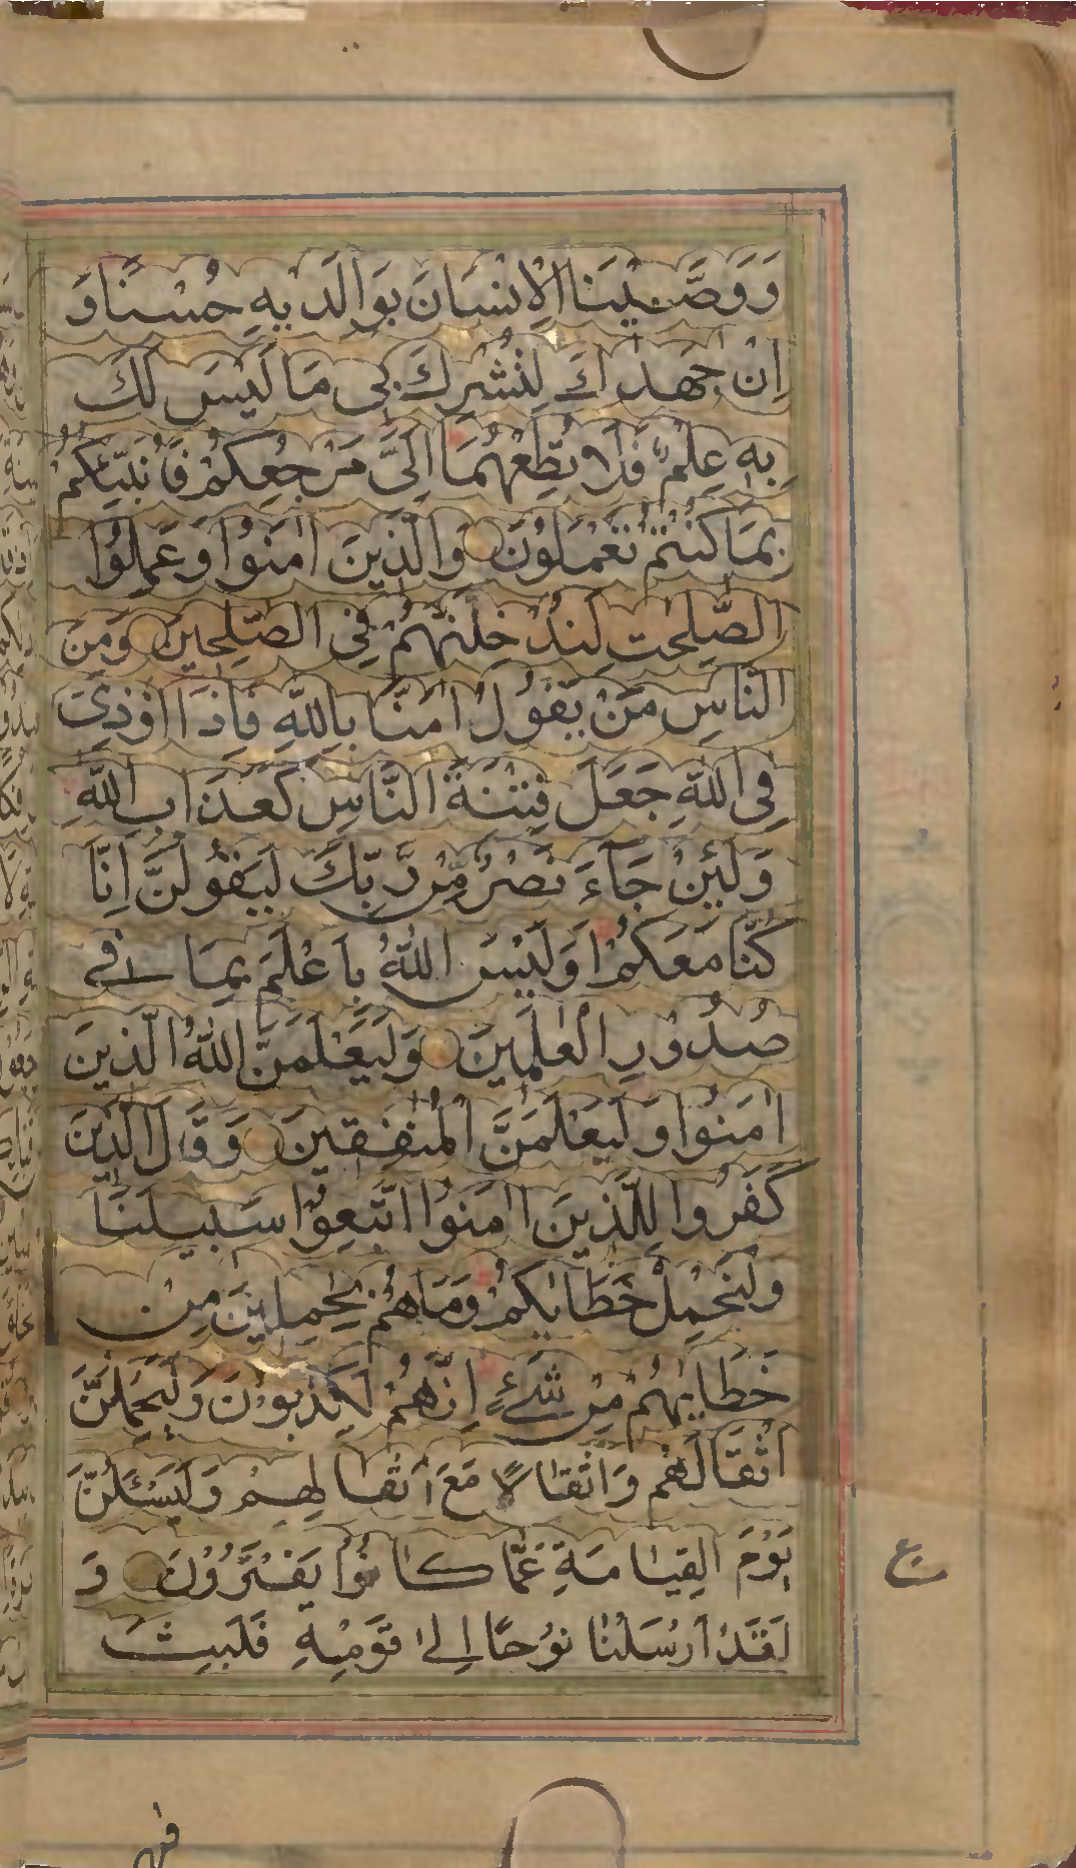 وَوَصَّيْنَا الْاِنْسَانَ بِوَالِدَيْهِ حُسْنًا وَ
اِنْ جٰهَدٰاكَ لِتُشْرِكَ بى مَا لَيْسَ لَكَ
بِهٖ عِلْمٌ فَلَا تُطِعْهُمَا اِلَىَّ مَرْجِعُكُمْ فَاُنَبِّئُكُمْ
بِمَا كُنْتُمْ تَعْمَلُوْنَ وَالَّذِيْنَ اٰمَنُوْا وَعَمِلُوا
الصّٰلِحٰتِ لَنُدْخِلَنَّهُمْ فِى الصّٰلِحِيْنَ وَمِنَ
النَّاسِ مَنْ يَّقُوْلُ اٰمَنَّا بِاللّٰهِ فَاِذَا اُوْذِىَ
فِى اللّٰهِ جَعَلَ فِتْنَةَ النَّاسِ كَعَذَابِ اللّٰهِ
وَلَئِنْ جَآءَ نَصْرٌ مِّنْ رَّبِّكَ لَيَقُوْلُنَّ اِنَّا
كُنَّا مَعَكُمْ اَوَلَيْسَ اللّٰهُ بِاَعْلَمَ بِمَا فى
صُدُوْرِ الْعٰلَمِيْنَ وَلَيَعْلَمَنَّ اللّٰهُ الَّذِيْنَ
اٰمَنُوْا وَلَيَعْلَمَنَّ الْمُنٰفِقِيْنَ وَقَالَ الَّذِيْنَ
كَفَرُوا لِلَّذِيْنَ اٰمَنُوا اتَّبِعُوْا سَبِيْلَنَا
وَلْنَحْمِلْ خَطَايٰكُمْ وَمَا هُمْ بِحٰمِلِيْنَ مِنْ
خَطَايٰهُمْ مِنْ شَىْءٍ اِنَّهُمْ لَكٰذِبُوْنَ وَلَيَحْمِلُنَّ
اَثْقَالَهُمْ وَاَثْقَالًا مَعَ اَثْقَالِهِمْ وَلَيُسْئَلُنَّ
يَوْمَ الْقِيَامَةِ عَمَّا كَانُوْا يَفْتَرُوْنَ وَ
لَقَدْ اَرْسَلْنَا نُوْحًا اِلىٰ قَوْمِهٖ فَلَبِثَ
ع